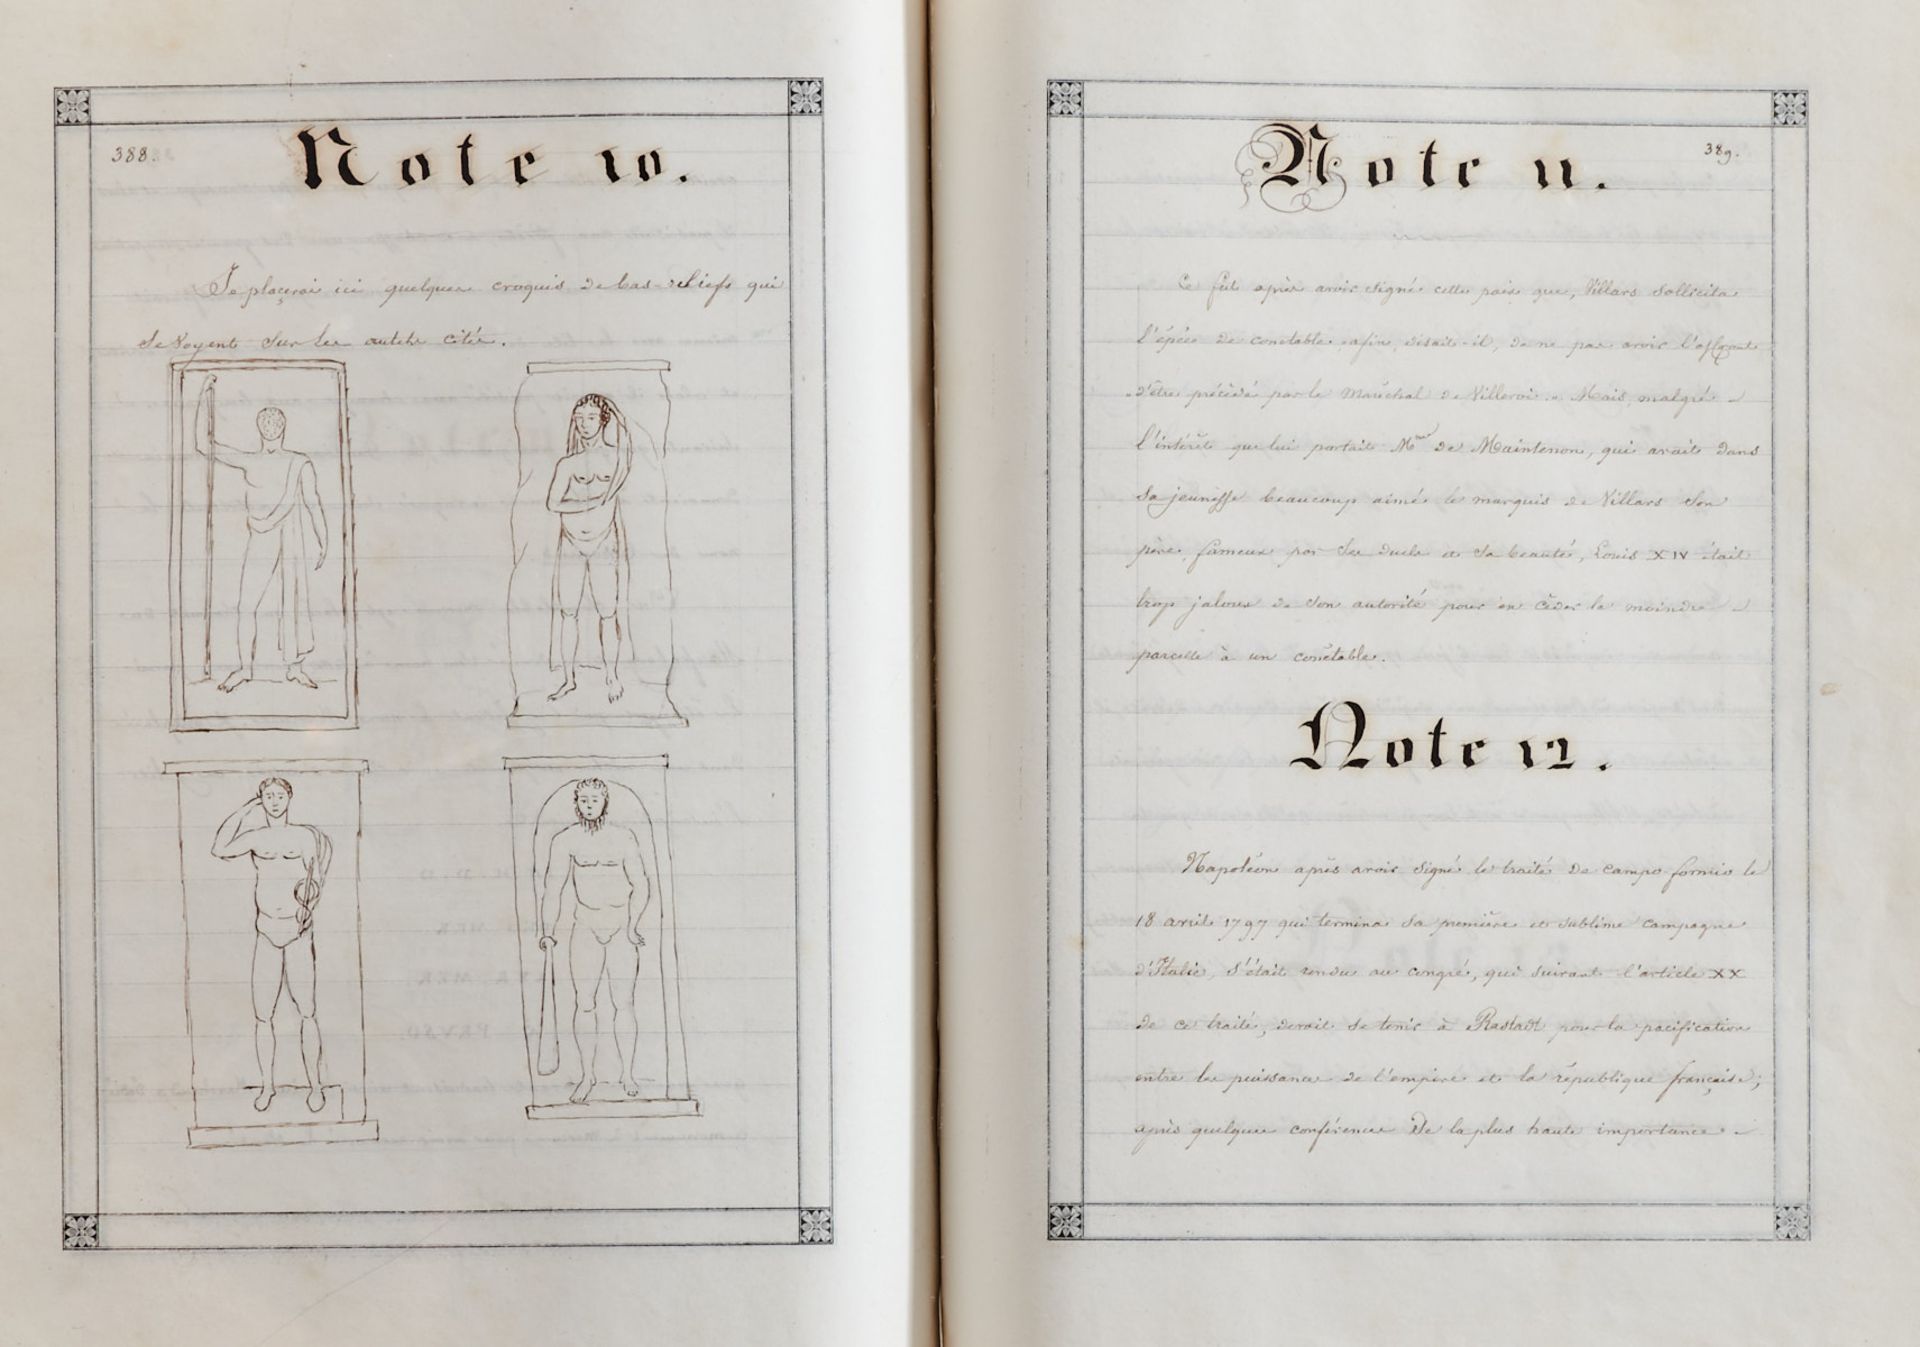 388.
Note 10.
Je plaçerai ici quelques croquis de bas-reliefs qui
se voyent sur les cités.
389.
Note 11.
Ce fut après avoir signé cette paix que, Villars sollicita
l'épée de conétable, afin, disait-il, de ne pas avoir l'affront
d'être précédé par le Maréchal de Villeroi. Mais, malgré
l'intérêt que lui portait Mme de Maintenon, qui avait dans
sa jeunesse beaucoup aimé le marquis de Villars son
père, fameux par ses duels et sa beauté, Louis XIV était
trop jaloux de son autorité pour en céder la moindre
parcelle à un conétable.
Note 12.
Napoléon après avoir signé le traité de campo-formio le
18 avril 1797 qui termina sa première et sublime campagne
d'Italie, s'était rendu au congré, qui suivant l'article XX
de ce traité, devait se tenir à Rastadt pour la pacification
entre les puissances de l'empire et la république française;
après quelques conférences de la plus haute importance